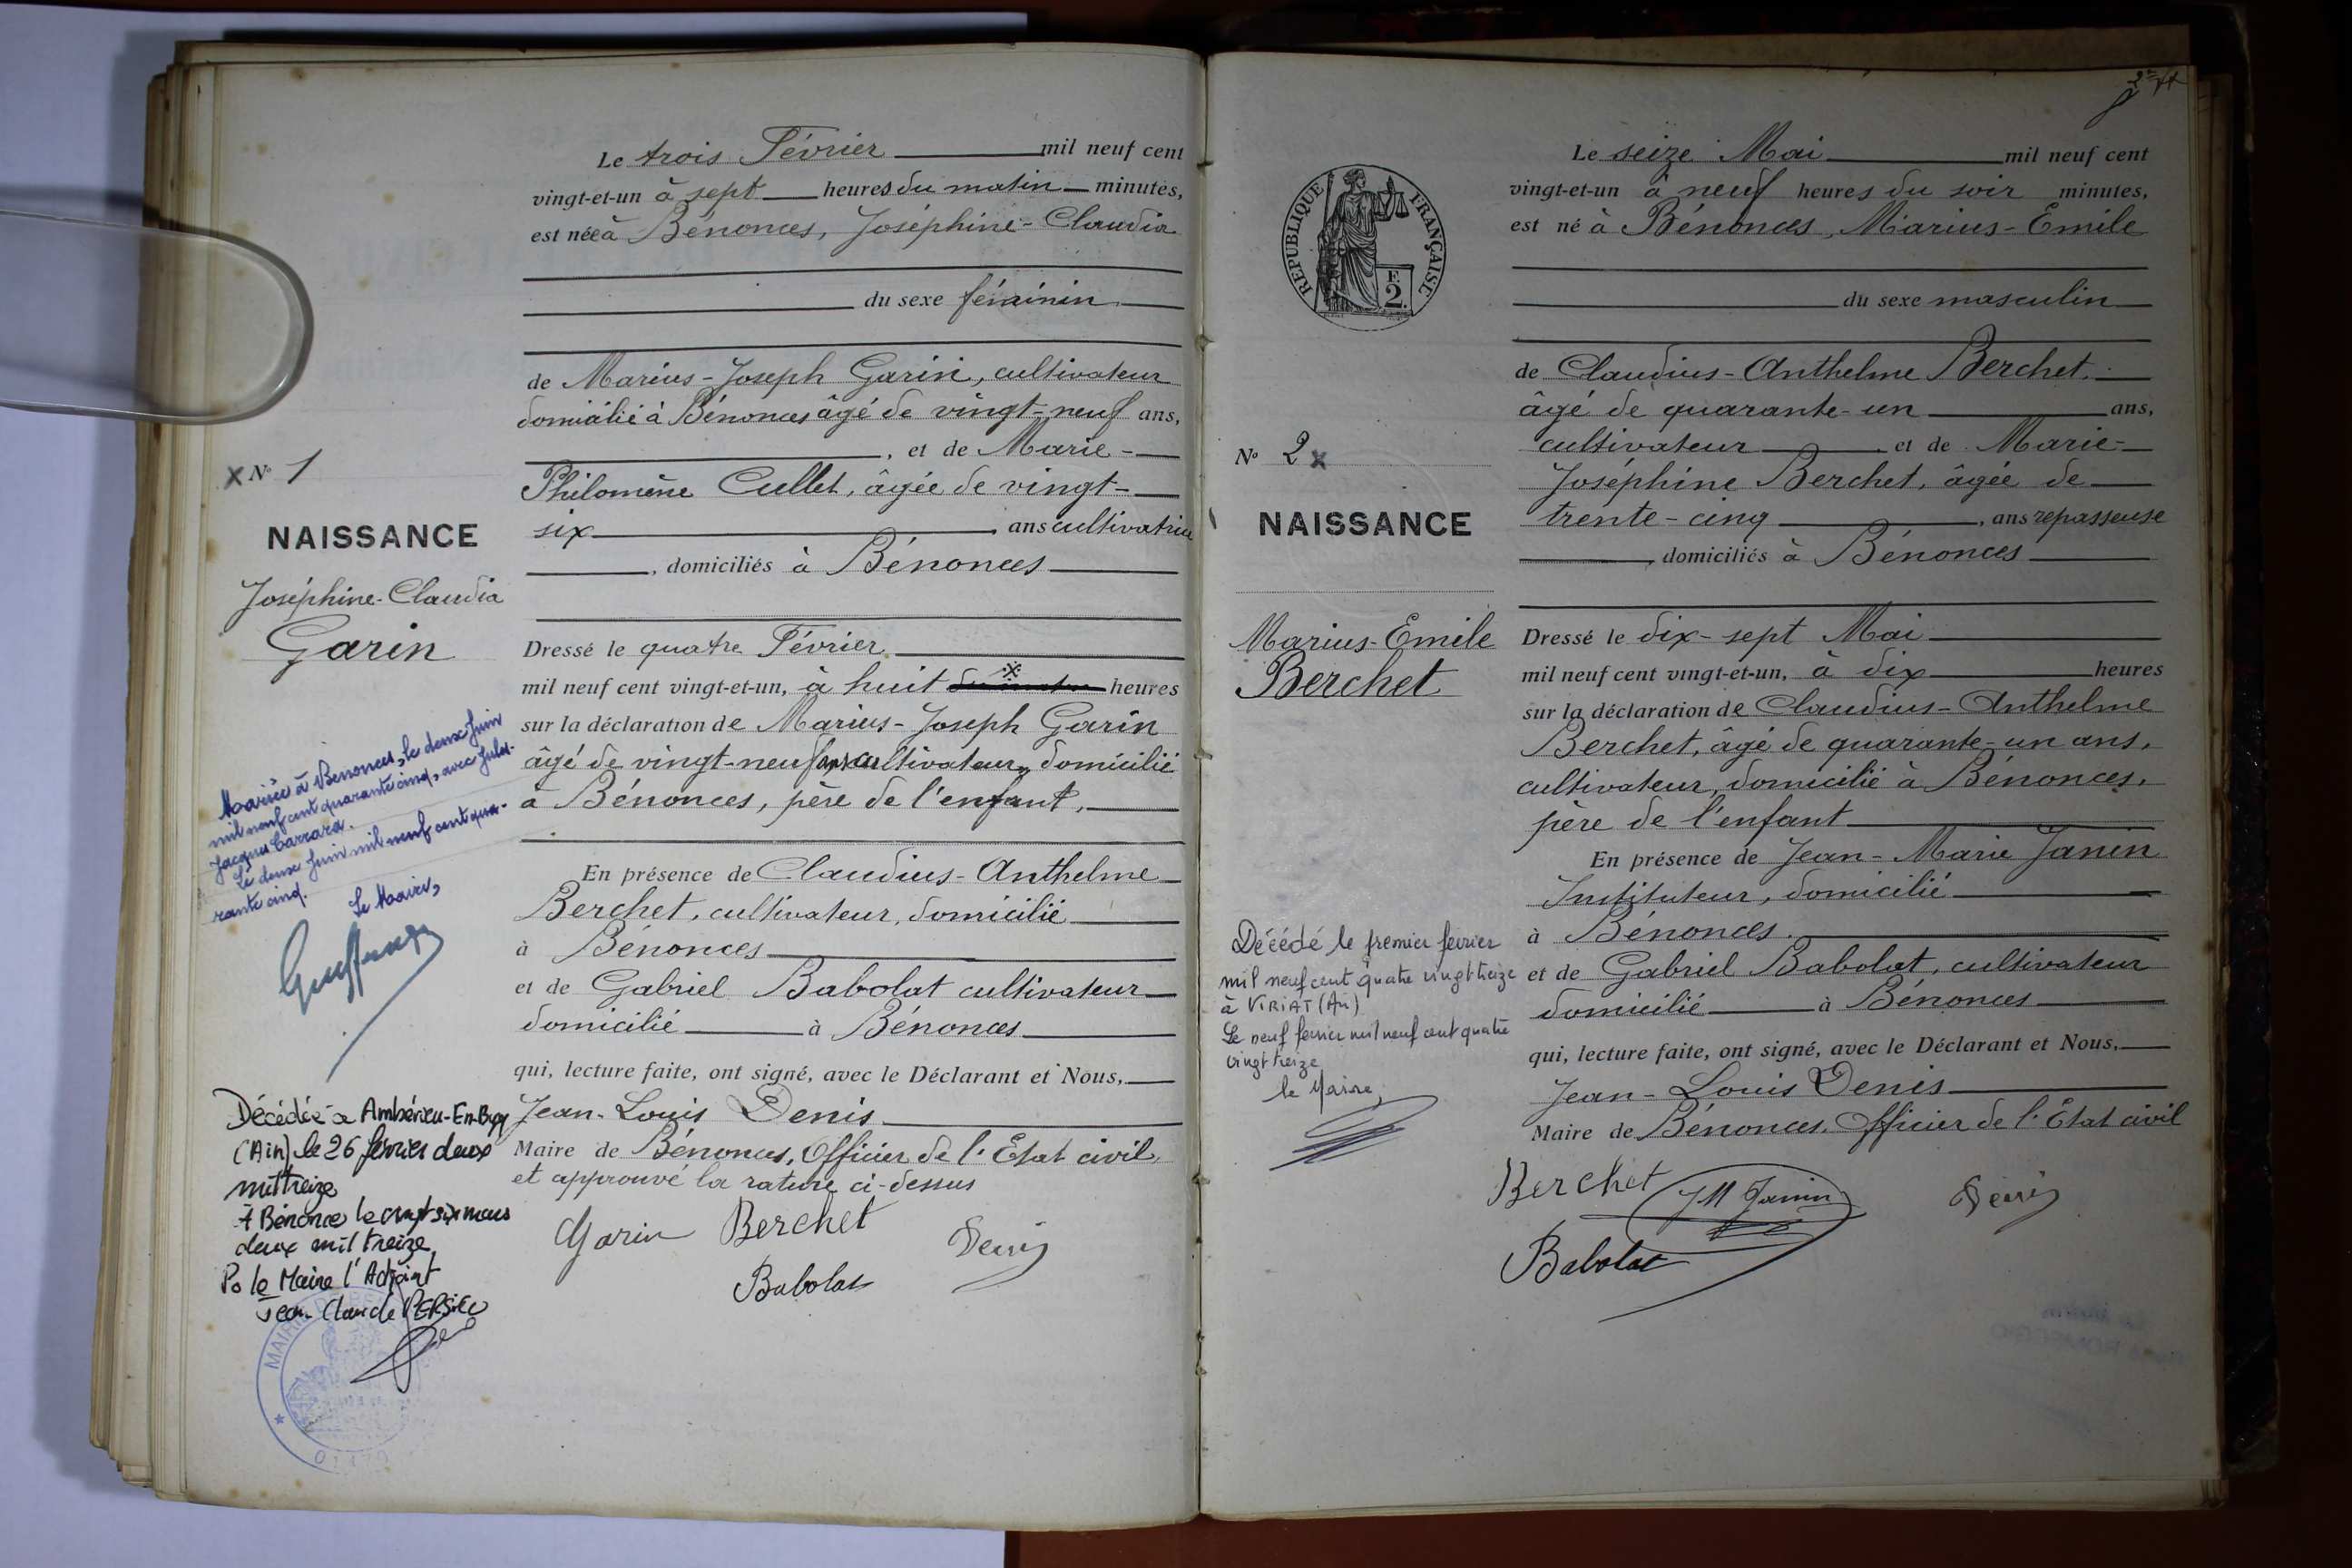 Le trois Février mil neuf cent
vingt-et-un à sept heures du matin minutes,
est née à Bénonces, Joséphine-Claudia
du sexe féminin
de Marius-Joseph Garin, cultivateur
domicilié à Bénonces âgé de vingt-neuf ans,
, et de Marie-
Philomène Cullet, âgée de vingt-
six , ans cultivatrice
, domiciliés à Bénonces
Dressé le quatre Février
mil neuf cent vingt-et-un, à huit heures
sur la déclaration de Marius-Joseph Garin
âgé de vingt-neuf ans cultivateur, domicilié
à Bénonces, père de l'enfant,
En présence de Claudius-Anthelme
Berchet, cultivateur, domicilié
à Bénonces
et de Gabriel Babolat cultivateur
domicilié à Bénonces
qui, lecture faite, ont signé, avec le Déclarant et Nous,
Jean-Louis Denis
Maire de Bénonces, Officier de l'État civil,
et approuvé la rature ci-dessus
Garin Berchet Denis
Babolat
X N° 1
NAISSANCE
Joséphine-Claudia
Garin
Mariée à Benonces, le deux Juin
mil neuf cent quarante cinq, avec Jules-
Jacques Carrara.
Le deux Juin mil neuf cent qua-
rante cinq.
Le Maire,
Décédée à Ambérieu-En-Bugey
(Ain) le 26 février deux
mil treize
A Bénonces le vingt six mars
deux mil treize
Po le Maire l'Adjoint
Jean Claude PERSICO
MAIRIE
Le seize Mai mil neuf cent
vingt-et-un à neuf heures du soir minutes,
est né à Bénonces, Marius-Emile
du sexe masculin
de Claudius-Anthelme Berchet,
âgé de quarante-un ans,
cultivateur et de Marie-
Joséphine Berchet, âgée de
trente-cinq , ans repasseuse
, domiciliés à Bénonces
Dressé le dix-sept Mai
mil neuf cent vingt-et-un, à dix heures
sur la déclaration de Claudius-Anthelme
Berchet, âgé de quarante-un ans,
cultivateur, domicilié à Bénonces,
père de l'enfant
En présence de Jean-Marie Janin
Instituteur, domicilié
à Bénonces.
et de Gabriel Babolat, cultivateur
domicilié à Bénonces
qui, lecture faite, ont signé, avec le Déclarant et Nous,
Jean-Louis Denis
Maire de Bénonces, Officier de l'État civil
Berchet J M Janin Denis
Babolat
RÉPUBLIQUE FRANÇAISE
F.
2.
N° 2 x
NAISSANCE
Marius-Emile
Berchet
Décédé le premier février
mil neuf cent quatre vingt treize
à VIRIAT (Ain)
Le neuf fevrier mil neuf cent quatre
vingt treize
le Maire,